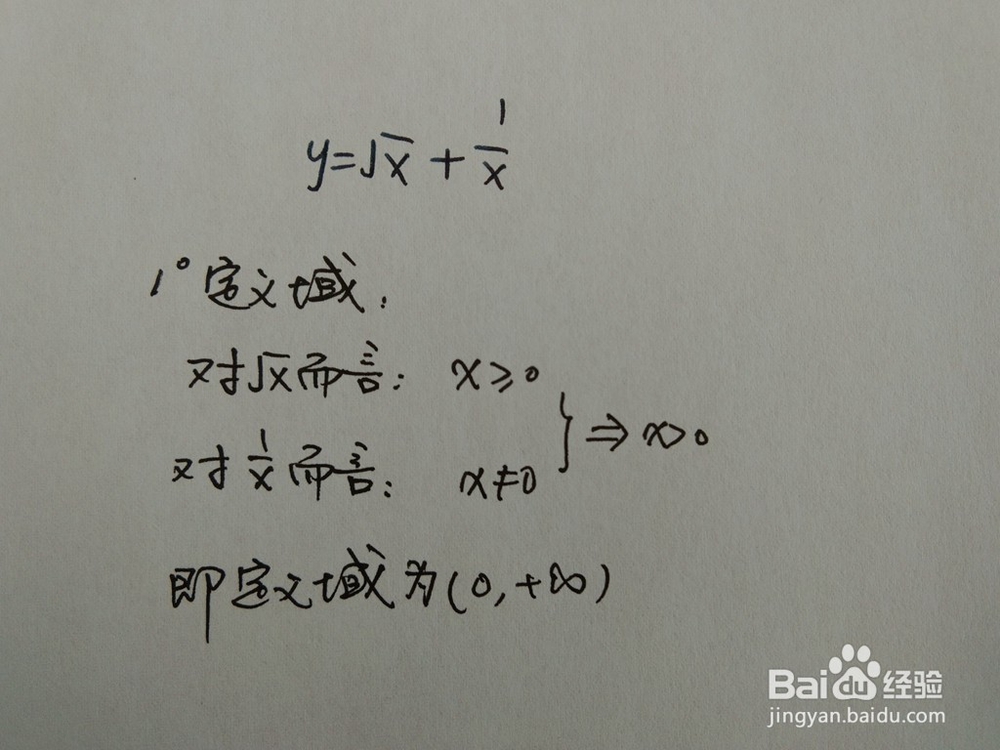 y=√x+1/x
1° 定义域:
对√x而言: x≥0
对1/x而言: x≠0
} ⇒ x>0
即定义域为(0,+∞)
Baidu经验
jingyan.baidu.com